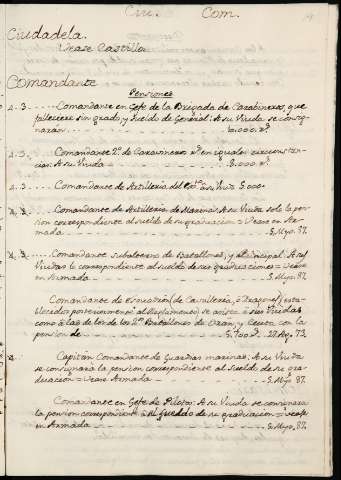 Ciu. Com.
Ciudadela.
Vease Castillo
Comandante
Pensiones
4. 3.... Comandante en Gefe de la Brigada de Carabineros, que
falleciere sin grado, y sueldo de General: A su Viuda se consig-
narán 10.000 rs.
4. 3. Comandante 2º de Carabineros rs. en iguales circunstan-
cias: A su Viuda 8.000 rs.
4. 3.... Comandante de Artilleria del 5.000
4. 3. Comandante de Artilleria de Marina: A su Viuda solo la pen-
sion correspondiente al sueldo de su graduacion = Vease Ar-
mada 5. Myo. 87.
4. 3. Comandante subalterno de Batallones, y Principal: A sus
Viudas la correspondiente al sueldo de sus graduaciones = Vease
en Armada 5. Myo. 87.
Comandante de Esquadron (de Cavalleria, ò Dragones) esta-
blecidos posteriormente al Reglamento) se asista à sus Viudas
como à las de los de los 2os Batallones de Oran, y Ceuta con la
pension de 3.700 rs. 22 Ag. 73.
Capitan Comandante de Guardias marinas: A su Viuda
se consignará la pension correspondiente al sueldo de su gra-
duacion = Vease Armada 5. Myo. 87.
Comandante en Gefe de Pilotos: A su Viuda se consignará
la pension correspondiente al sueldo de su graduacion = vease
en Armada 5. Myo. 87.